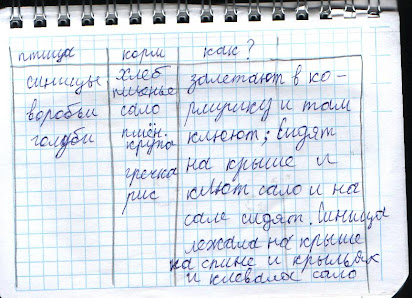 птица корм как?
синицы хлеб залетают в ко-
печенье
воробьи сало рмушку и там
голуби пшён. клюют; Сидят
крупа
гречка на крыше и
рис клюют сало и на
сале сидят. Синица
лежала на крыше
на спине и крыльях
и клевала сало